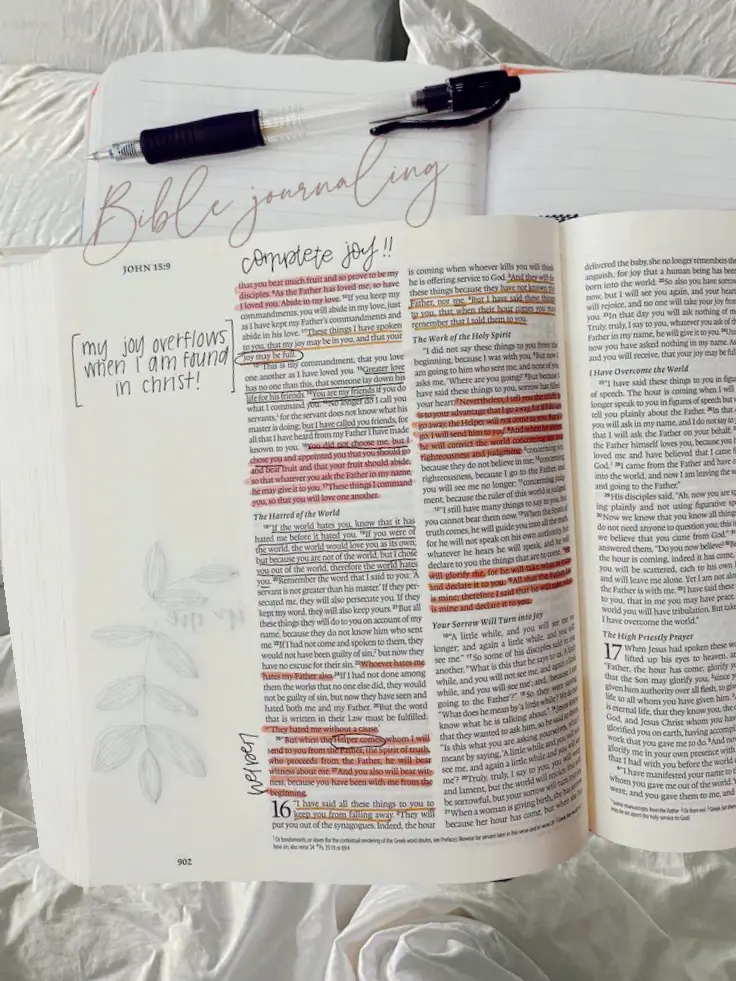 Bible journaling
JOHN 15:9
complete joy!!
[my joy overflows
when I am found
in christ!]
that you bear much fruit and so prove to be my
disciples. ⁹As the Father has loved me, so have
I loved you. Abide in my love. ¹⁰If you keep my
commandments, you will abide in my love, just
as I have kept my Father's commandments and
abide in his love. ¹¹These things I have spoken
to you, that my joy may be in you, and that your
joy may be full.
¹²"This is my commandment, that you love
one another as I have loved you. ¹³Greater love
has no one than this, that someone lay down his
life for his friends. ¹⁴You are my friends if you do
what I command you. ¹⁵No longer do I call you
servants, for the servant does not know what his
master is doing; but I have called you friends, for
all that I have heard from my Father I have made
known to you. ¹⁶You did not choose me, but I
chose you and appointed you that you should go
and bear fruit and that your fruit should abide,
so that whatever you ask the Father in my name,
he may give it to you. ¹⁷These things I command
you, so that you will love one another.
The Hatred of the World
¹⁸"If the world hates you, know that it has
hated me before it hated you. ¹⁹If you were of
the world, the world would love you as its own;
but because you are not of the world, but I chose
you out of the world, therefore the world hates
you. ²⁰Remember the word that I said to you: 'A
servant is not greater than his master.' If they per-
secuted me, they will also persecute you. If they
kept my word, they will also keep yours. ²¹But all
these things they will do to you on account of my
name, because they do not know him who sent
me. ²²If I had not come and spoken to them, they
would not have been guilty of sin, but now they
have no excuse for their sin. ²³Whoever hates me
hates my Father also. ²⁴If I had not done among
them the works that no one else did, they would
not be guilty of sin, but now they have seen and
hated both me and my Father. ²⁵But the word
that is written in their Law must be fulfilled:
'They hated me without a cause.'
helper
²⁶"But when the Helper comes, whom I will
send to you from the Father, the Spirit of truth,
who proceeds from the Father, he will bear
witness about me. ²⁷And you also will bear wit-
ness, because you have been with me from the
beginning.
16 "I have said all these things to you to
keep you from falling away. ²They will
put you out of the synagogues. Indeed, the hour
902
is coming when whoever kills you will think
he is offering service to God. ³And they will do
these things because they have not known the
Father, nor me. ⁴But I have said these things
to you, that when their hour comes you may
remember that I told them to you.
The Work of the Holy Spirit
"I did not say these things to you from the
beginning, because I was with you. ⁵But now I
am going to him who sent me, and none of you
asks me, 'Where are you going?' ⁶But because I
have said these things to you, sorrow has filled
your heart. ⁷Nevertheless, I tell you the truth: it
is to your advantage that I go away, for if I do not
go away, the Helper will not come to you. But if I
go, I will send him to you. ⁸And when he comes,
he will convict the world concerning sin and
righteousness and judgment: ⁹concerning sin,
because they do not believe in me; ¹⁰concerning
righteousness, because I go to the Father, and
you will see me no longer; ¹¹concerning judg-
ment, because the ruler of this world is judged.
¹²"I still have many things to say to you, but
you cannot bear them now. ¹³When the Spirit of
truth comes, he will guide you into all the truth,
for he will not speak on his own authority, but
whatever he hears he will speak, and he will
declare to you the things that are to come. ¹⁴He
will glorify me, for he will take what is mine
and declare it to you. ¹⁵All that the Father has
is mine; therefore I said that he will take what
is mine and declare it to you.
Your Sorrow Will Turn into Joy
¹⁶"A little while, and you will see me no
longer; and again a little while, and you will
see me." ¹⁷So some of his disciples said to one
another, "What is this that he says to us, 'A little
while, and you will not see me, and again a little
while, and you will see me'; and, 'because I am
going to the Father'?" ¹⁸So they were saying,
"What does he mean by 'a little while'? We do not
know what he is talking about." ¹⁹Jesus knew
that they wanted to ask him, so he said to them,
"Is this what you are asking yourselves, what I
meant by saying, 'A little while and you will not
see me, and again a little while and you will see
me'? ²⁰Truly, truly, I say to you, you will weep
and lament, but the world will rejoice. You will
be sorrowful, but your sorrow will turn into joy.
²¹When a woman is giving birth, she has sorrow
because her hour has come, but when she has
delivered the baby, she no longer remembers the
anguish, for joy that a human being has been
born into the world. ²²So also you have sorrow
now, but I will see you again, and your hearts
will rejoice, and no one will take your joy from
you. ²³In that day you will ask nothing of me.
Truly, truly, I say to you, whatever you ask of the
Father in my name, he will give it to you. ²⁴Until
now you have asked nothing in my name. Ask,
and you will receive, that your joy may be full.
I Have Overcome the World
²⁵"I have said these things to you in figures
of speech. The hour is coming when I will no
longer speak to you in figures of speech but will
tell you plainly about the Father. ²⁶In that day
you will ask in my name, and I do not say to you
that I will ask the Father on your behalf; ²⁷for
the Father himself loves you, because you have
loved me and have believed that I came from
God. ²⁸I came from the Father and have come
into the world, and now I am leaving the world
and going to the Father."
²⁹His disciples said, "Ah, now you are speak-
ing plainly and not using figurative speech!
³⁰Now we know that you know all things and
do not need anyone to question you; this is why
we believe that you came from God."
answered them, "Do you now believe?
the hour is coming, indeed it has come, when
you will be scattered, each to his own home,
and will leave me alone. Yet I am not alone, for
the Father is with me. ³³I have said these things
to you, that in me you may have peace. In the
world you will have tribulation. But take heart;
I have overcome the world."
The High Priestly Prayer
17 When Jesus had spoken these words, he
lifted up his eyes to heaven, and said,
"Father, the hour has come; glorify your Son
that the Son may glorify you, ²since you have
given him authority over all flesh, to give eternal
life to all whom you have given him. ³And this
is eternal life, that they know you, the only true
God, and Jesus Christ whom you have sent. ⁴I
glorified you on earth, having accomplished the
work that you gave me to do. ⁵And now, Father,
glorify me in your own presence with the glory
that I had with you before the world existed.
⁶"I have manifested your name to the people
whom you gave me out of the world. Yours they
were, and you gave them to me, and they have